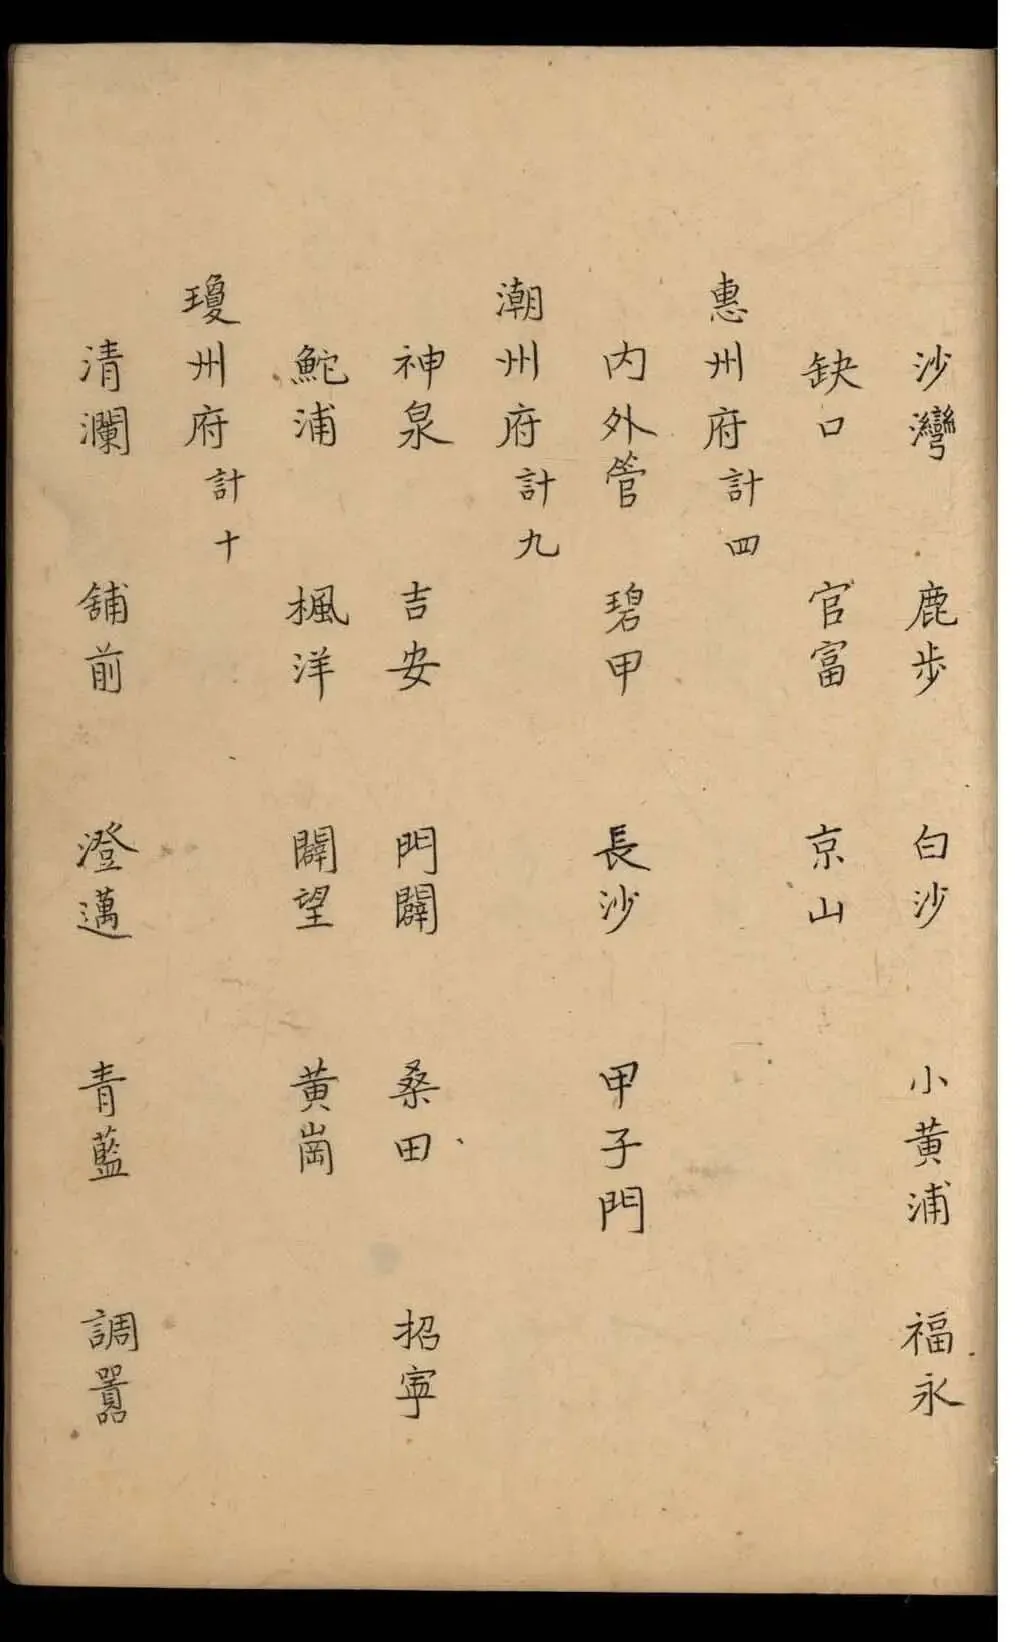 沙灣 鹿步 白沙 小黄浦 福永
缺口 官富 京山
惠州府計四
内外管 碧甲 長沙 甲子門
潮州府計九
神泉 吉安 門闢 桑田 招寧
鮀浦 楓洋 闢望 黄崗
瓊州府計十
清瀾 舖前 澄邁 青藍 調囂